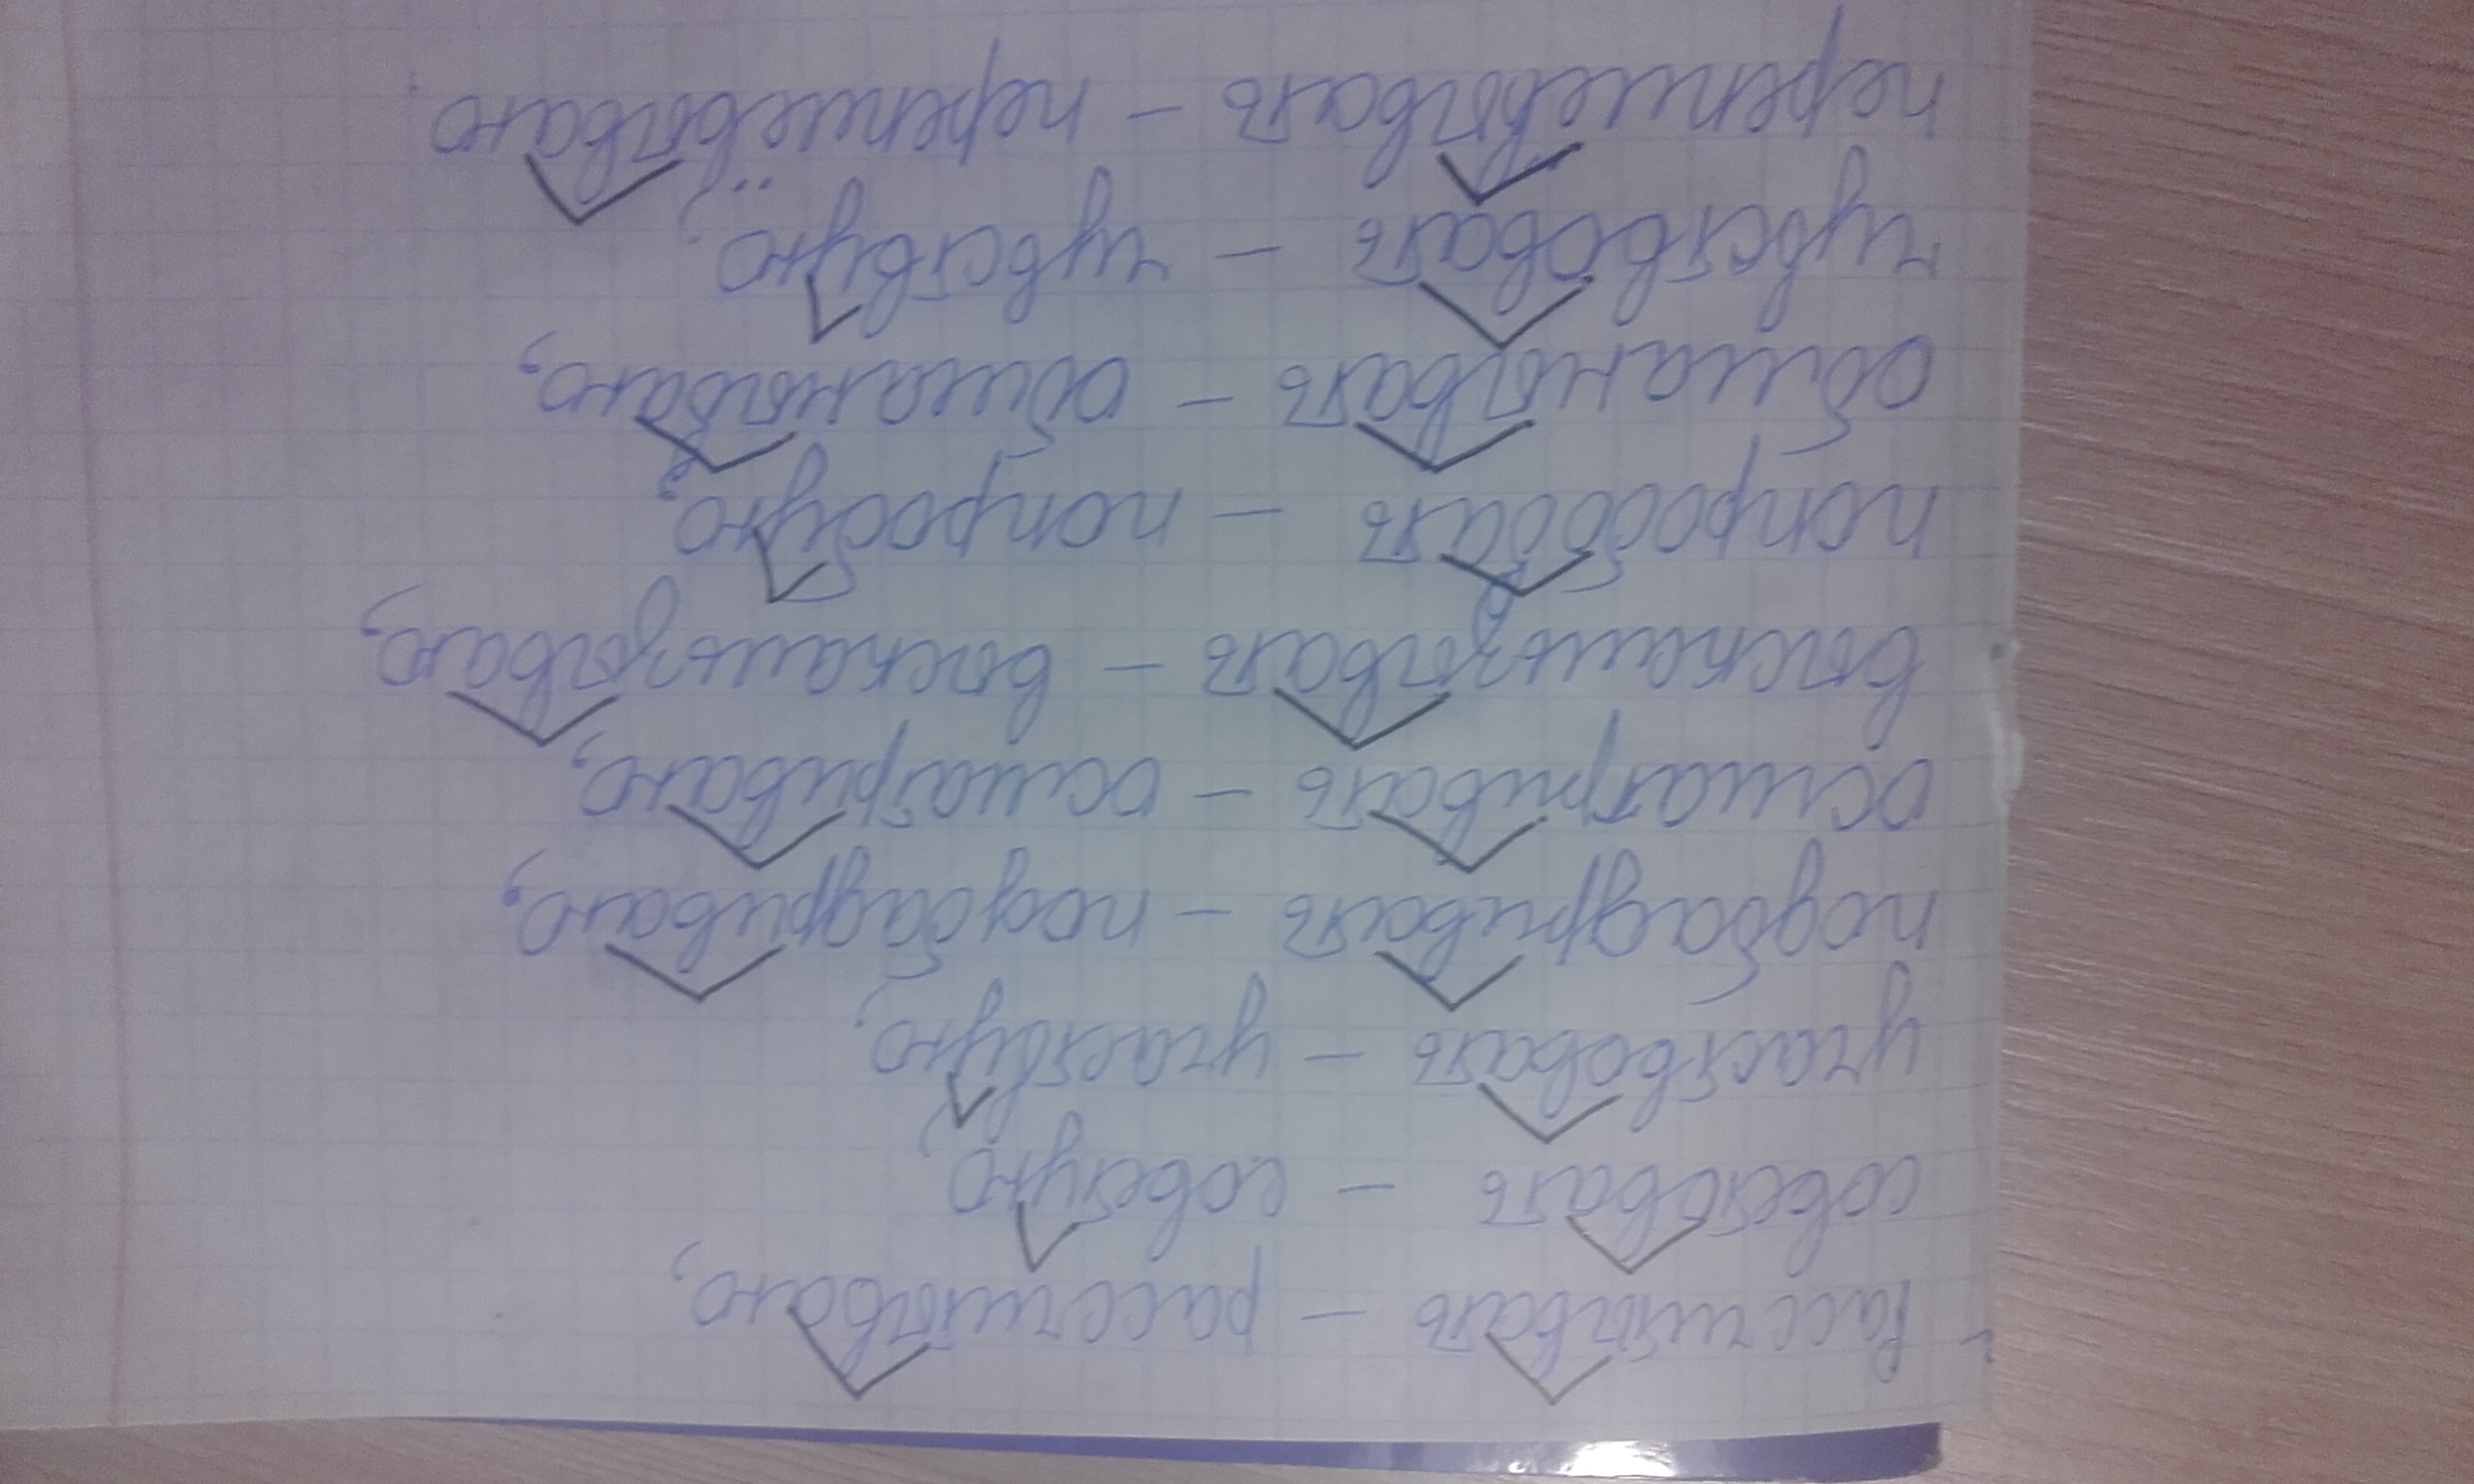 Рассчитывать – рассчитываю,
советовать – советую,
участвовать – участвую,
подбадривать – подбадриваю,
осматривать – осматриваю,
выскальзывать – выскальзываю,
попробовать – попробую,
обманывать – обманываю,
чувствовать – чувствую.
перешевывать – перешёвываю.